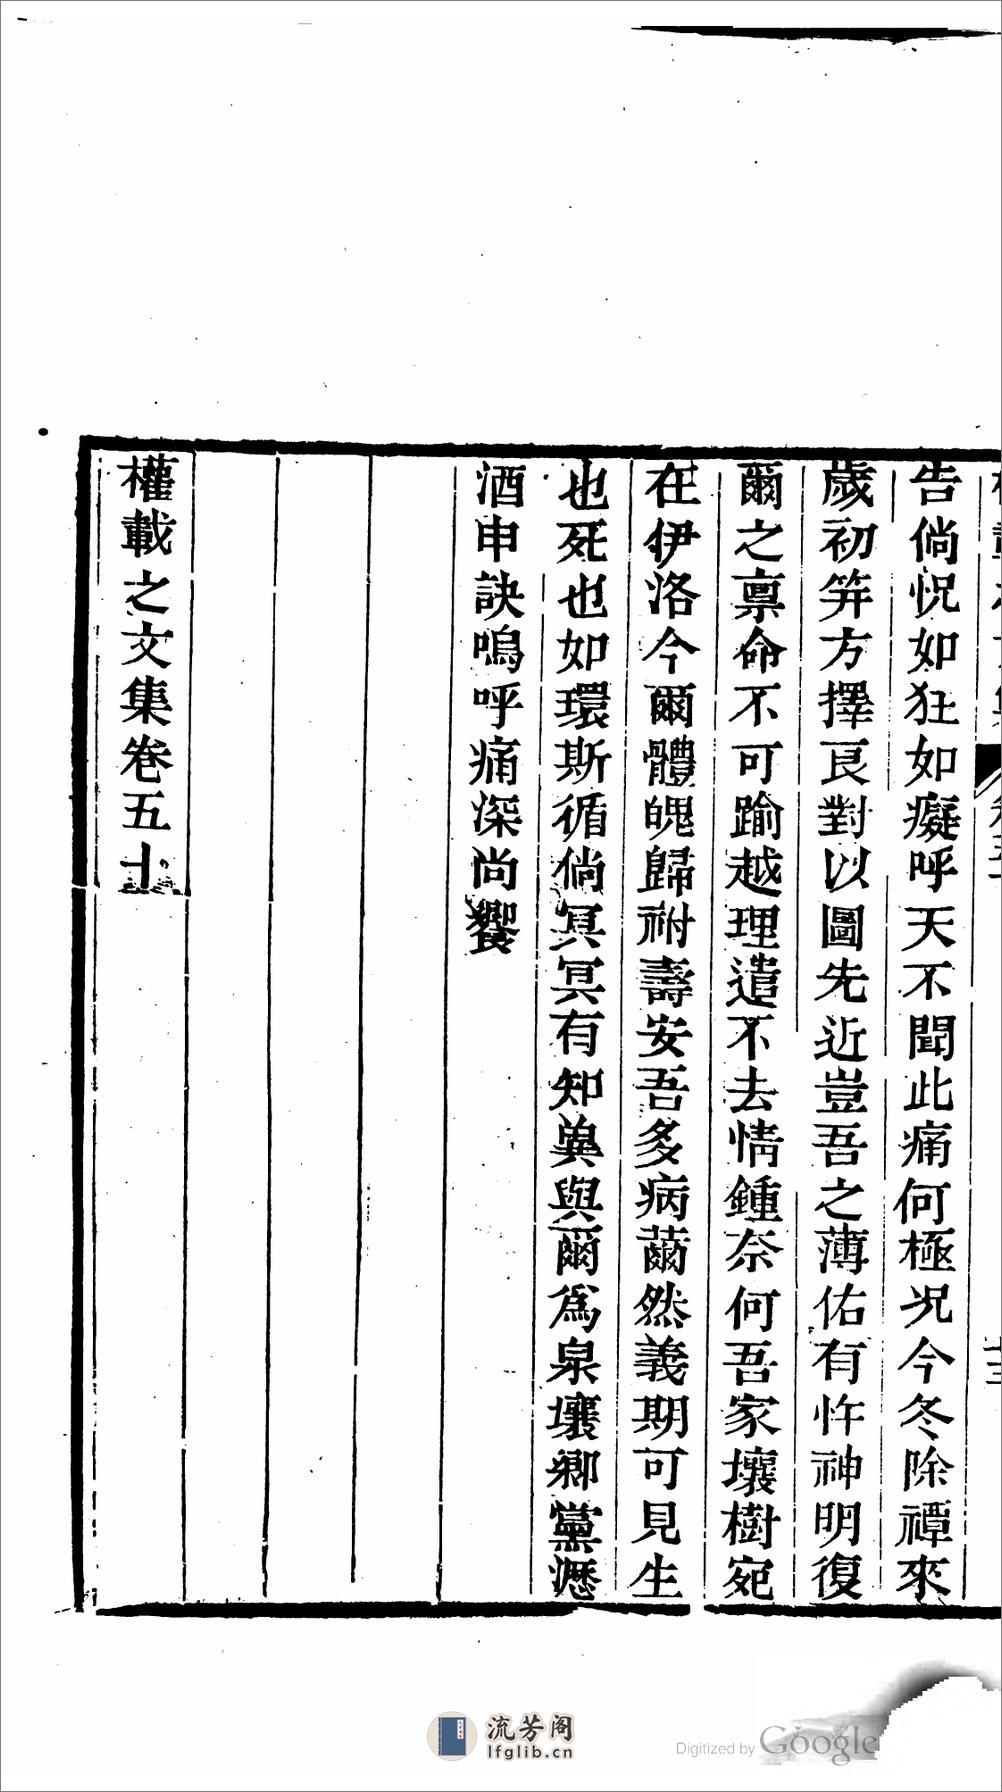 告倘怳如狂如癡呼天不聞此痛何極况今冬除禫來
歲初笄方擇良對以圖先近豈吾之薄佑有忤神明復
爾之禀命不可踰越理遣不去情鍾奈何吾家壤樹宛
在伊洛今爾體魄歸祔壽安吾多病薾然義期可見生
也死也如環斯循倘冥冥有知兾與爾爲泉壤鄉黨瀝
酒申訣嗚呼痛深尚饗
權載之文集卷五十
流芳阁
lfglib.cn
Digitized by Google